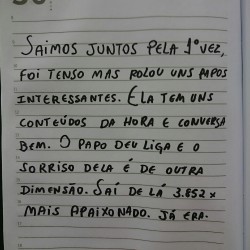 SAIMOS JUNTOS PELA 1º VEZ,
FOI TENSO MAS ROLOU UNS PAPOS
INTERESSANTES. ELA TEM UNS
CONTEÚDOS DA HORA E CONVERSA
BEM. O PAPO DEU LIGA E O
SORRISO DELA É DE OUTRA
DIMENSÃO. SAÍ DE LÁ 3.852x
MAIS APAIXONADO. JÁ ERA.